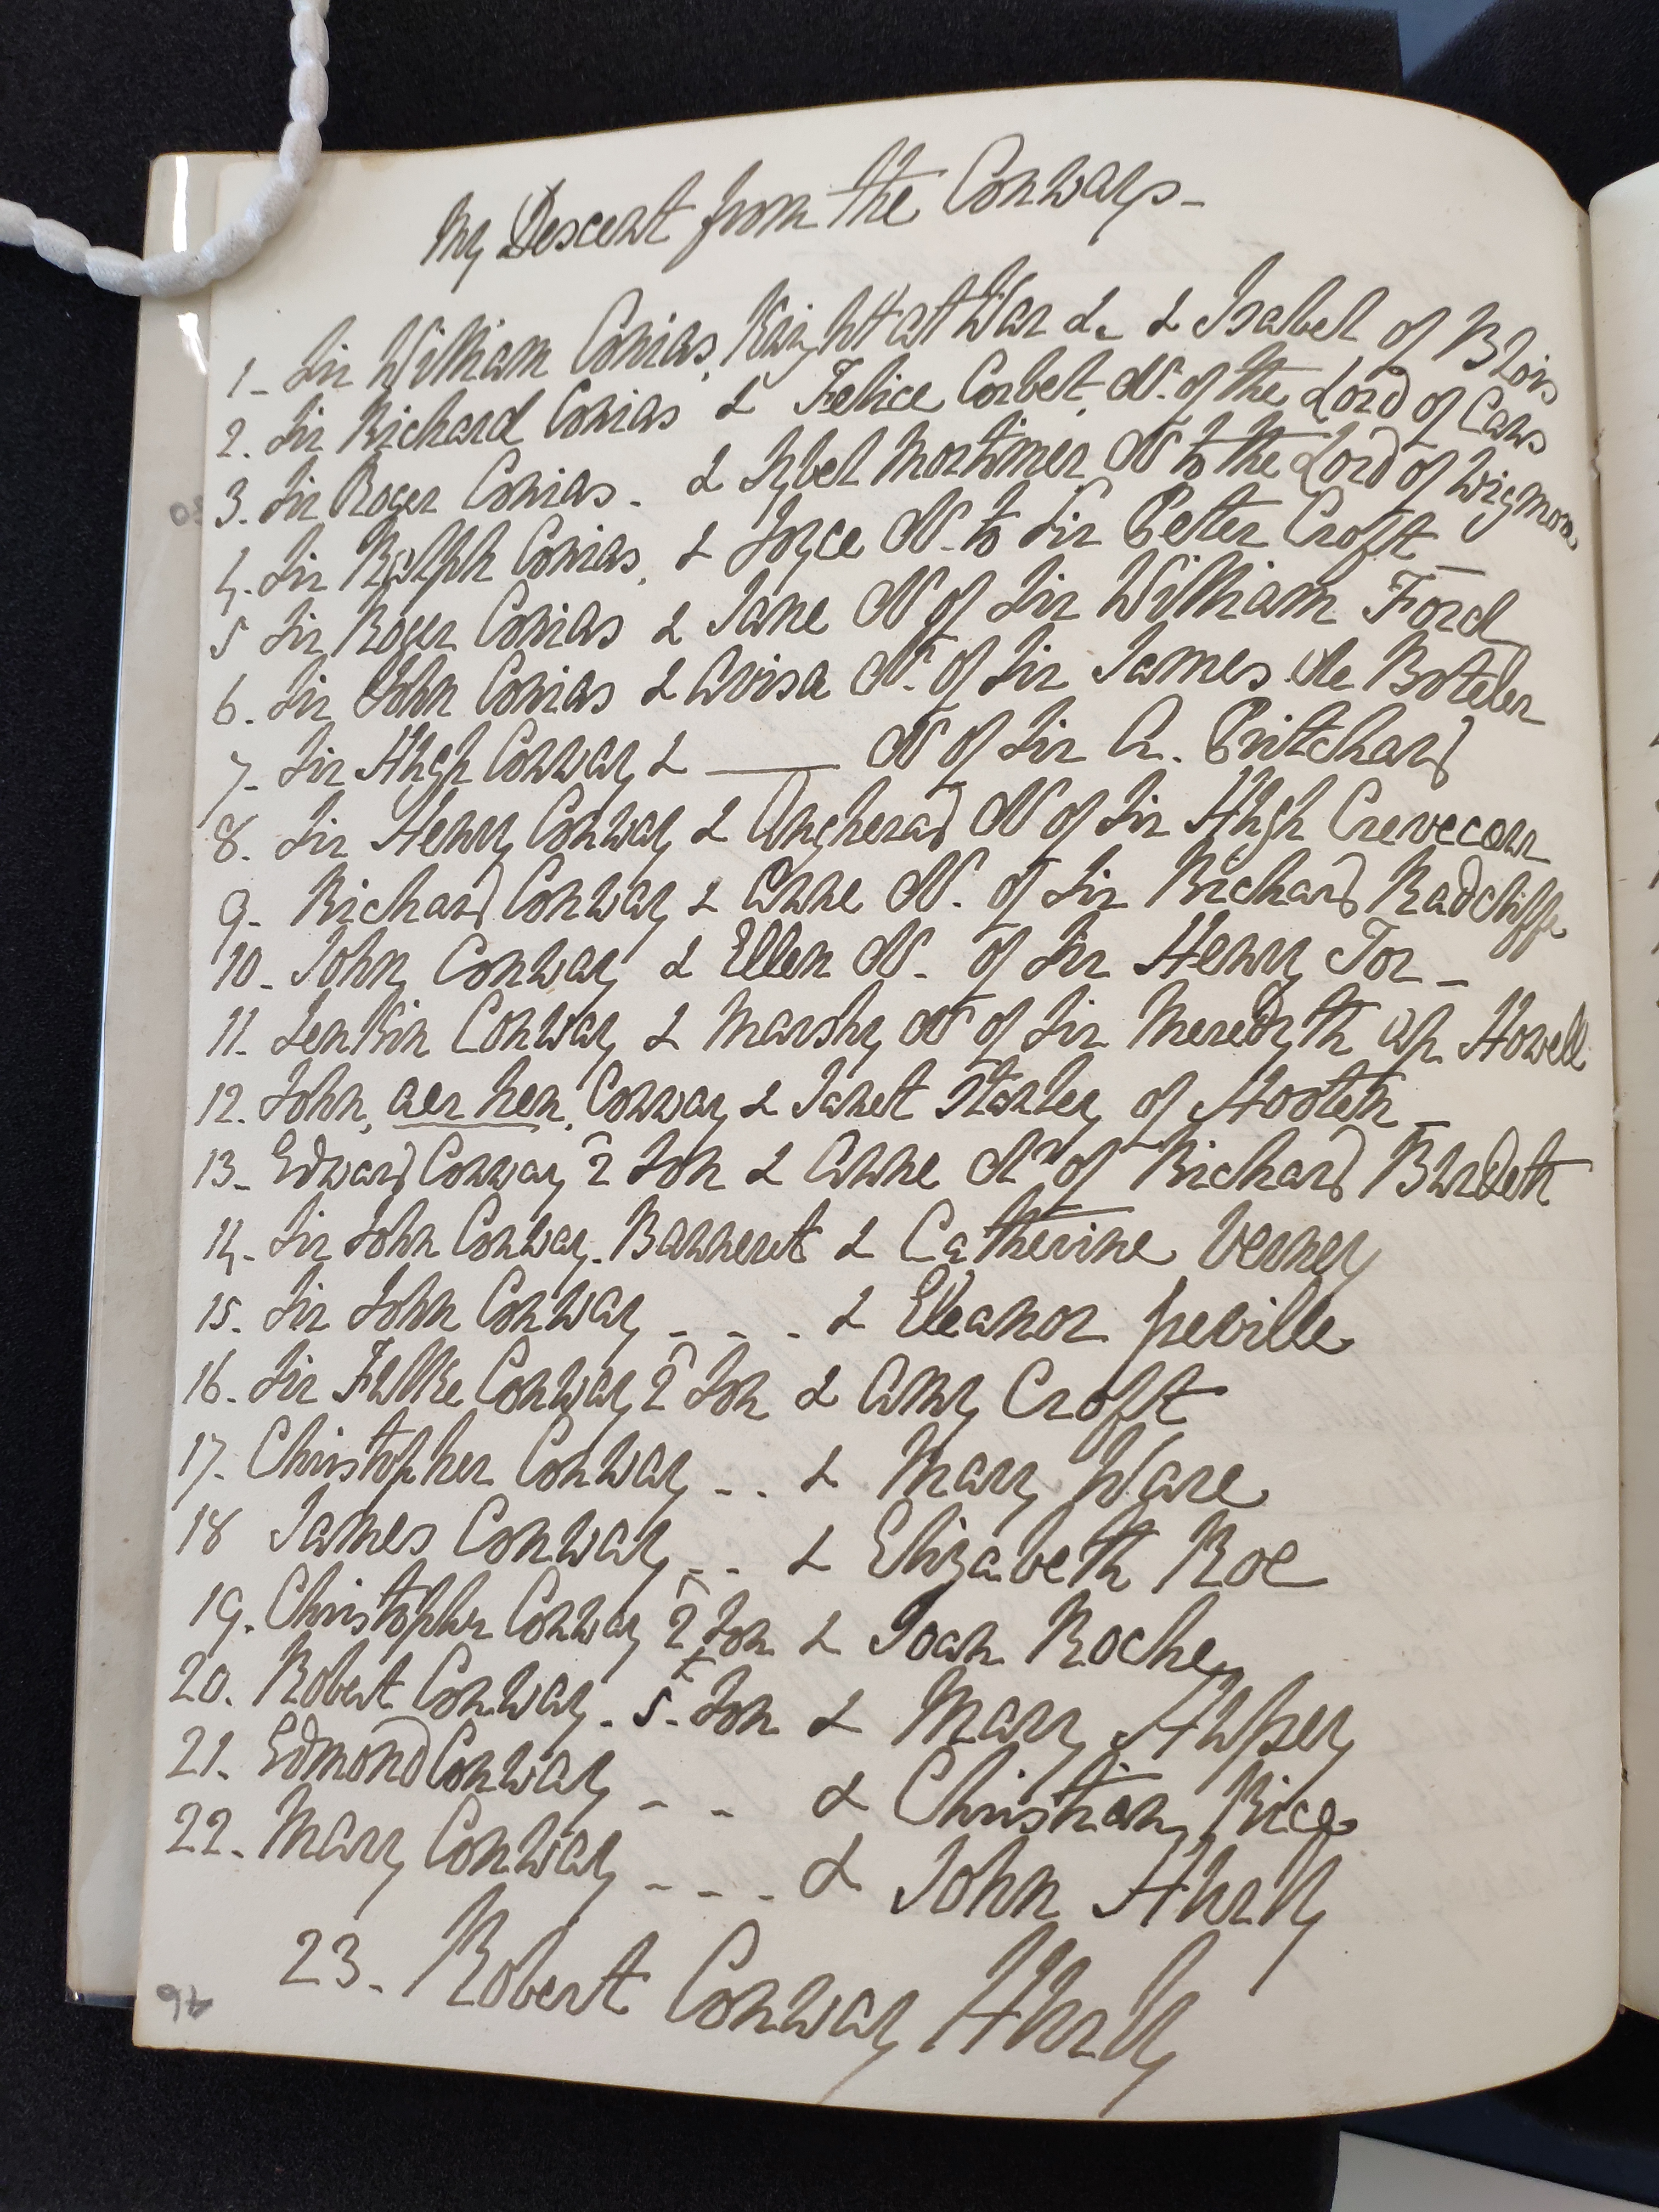 My Descent from the Conways -
1 - Sir William Conias, Knight at War &. & Isabel of Blois
2. Sir Richard Conias & Felice Corbet, Dr. of the Lord of Caws
3. Sir Roger Conias - & Sybel Mortimer Dr to the Lord of Wigmore
4. Sir Ralph Conias, & Joyce Dr. to Sir Peter Croft -
5 Sir Roger Conias & Jane Dr of Sir William Ford
6. Sir John Conias & Avisa Dr. of Sir James de Boteler
7. Sir Hugh Conway & ——— Dr of Sir A. Pritchard
8. Sir Henry Conway & Angherad Dr of Sir Hugh Crevecour
9. Richard Conway & Anne Dr. of Sir Richard Radcliffe
10. John Conway & Ellen Dr. of Sir Henry Tor -
11. Jenkin Conway & Marshy Dr of Sir Meredyth ap Howell
12. John, aer hen, Conway & Janet Stanley of Hooton -
13. Edward Conway 2 Son & Anne Dr of Richard Burdett
14. Sir John Conway. Bannerett & Catherine Verney
15. Sir John Conway - - - & Eleanor Greville
16. Sir Fulke Conway 2 Son & Amy Croft
17. Christopher Conway - - & Mary Ware
18 James Conway - - & Elizabeth Roe
19. Christopher Conway 2 Son & Joan Roche
20. Robert Conway. 5. Son & Mary Hussey
21. Edmond Conway - - & Christian Rice
22. Mary Conway - - - & John Hurly
23. Robert Conway Hurly